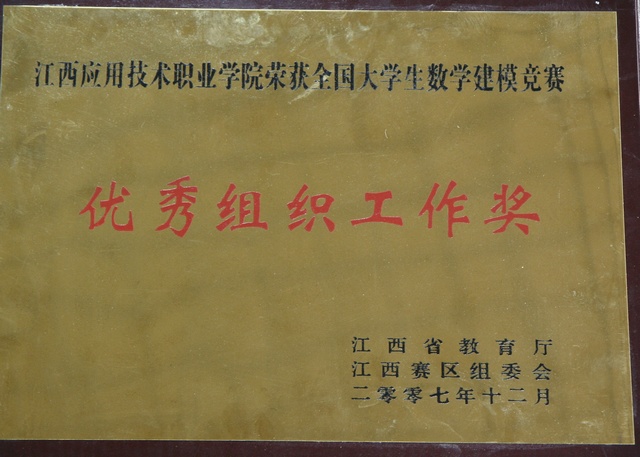 江西应用技术职业学院荣获全国大学生数学建模竞赛
优秀组织工作奖
江西省教育厅
江西赛区组委会
二零零七年十二月